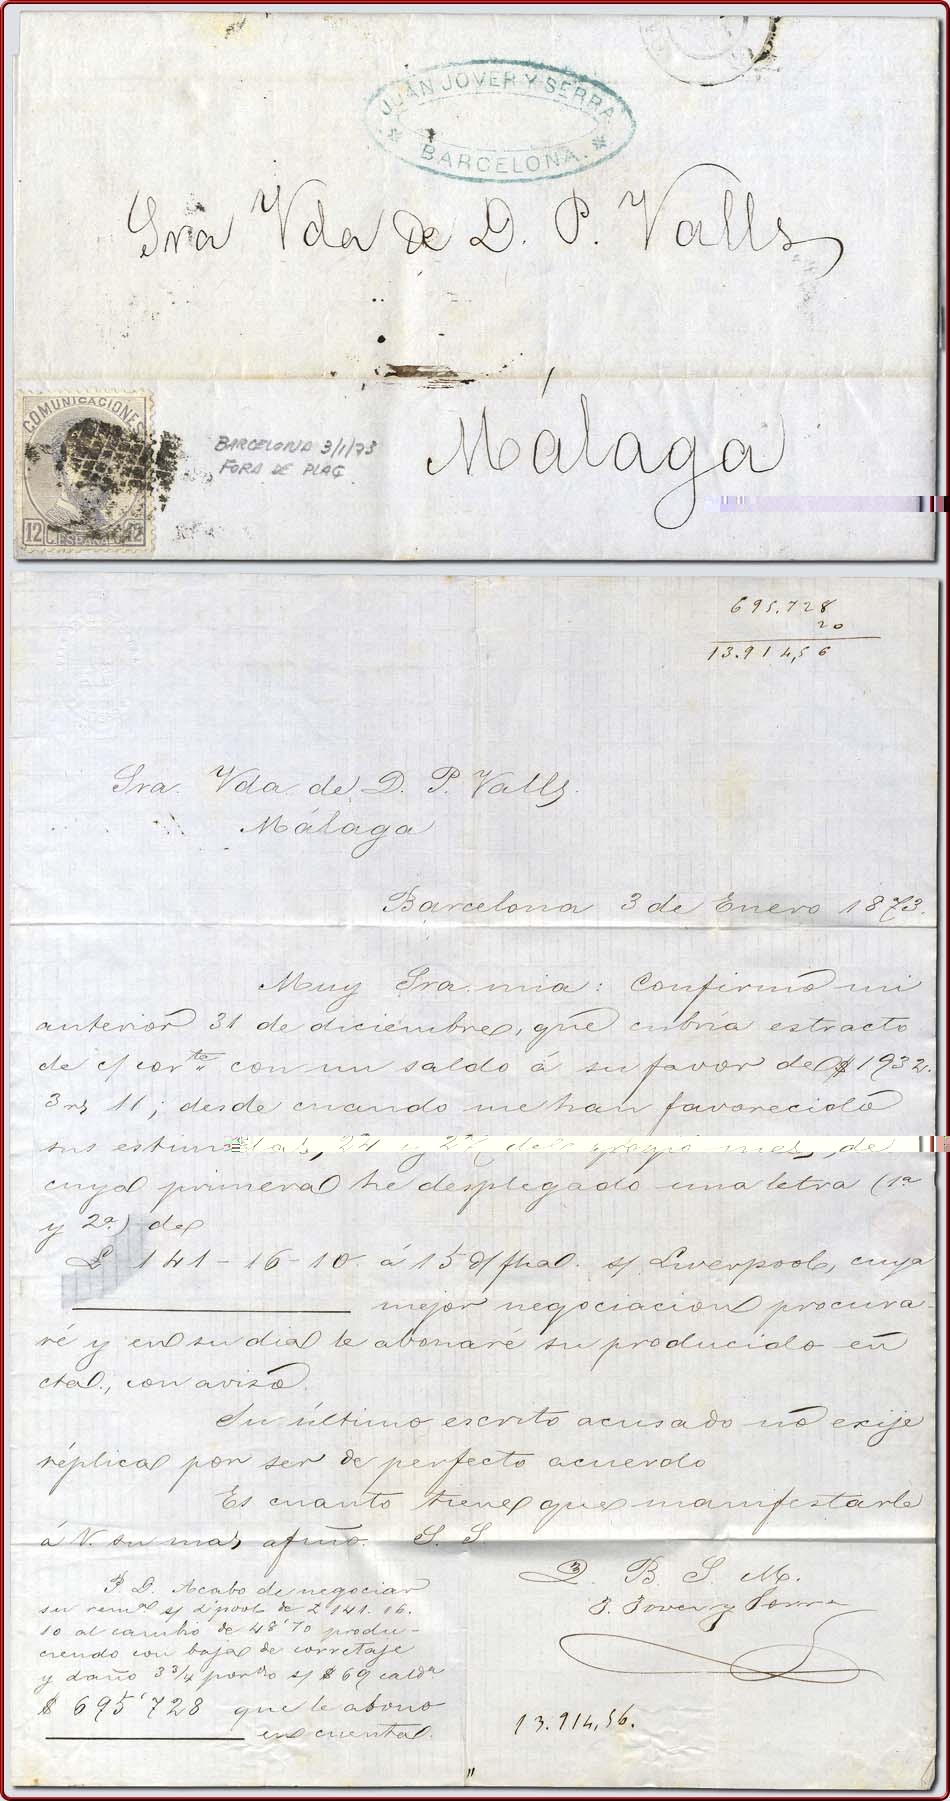 JUAN JOVER Y SERRA
BARCELONA.
Sra Vda de D. P. Valls
COMUNICACIONES
BARCELONA 3/1/73
FORA DE PLAÇ
Málaga
12 C. ESPAÑA C. 12
695.728
20
13.914,56
Sra. Vda de D. P. Valls.
Málaga
Barcelona 3 de Enero 1873.
Muy Sra. mia: Confirmo mi
anterior 31 de diciembre, que cubria estracto
de c/ corte con un saldo á su favor de $ 1932.
3 rs 11; desde cuando me han favorecido
sus y del mes, de
cuya primera he desplegado una letra (1a
y 2a) de
£ 141-16-10. á 15 d/ s/ Liverpool, cuya
mejor negociacion procura-
ré y en su dia le abonaré su producido en
cta., con aviso.
Su último escrito acusado no exije
réplica por ser de perfecto acuerdo
Es cuanto tiene que manifestarle
á V. su mas afmo. S. S.
Q. B. S. M.
J. Jover y Serra
P. D. Acabo de negociar
su rema s/ L'pool de £ 141. 16.
10 al cambio de 48'70 produ-
ciendo con baja de corretaje
y daño 3 3/4 s/ $ 69
$ 695'728 que le abono
en cuenta.
13.914,56.